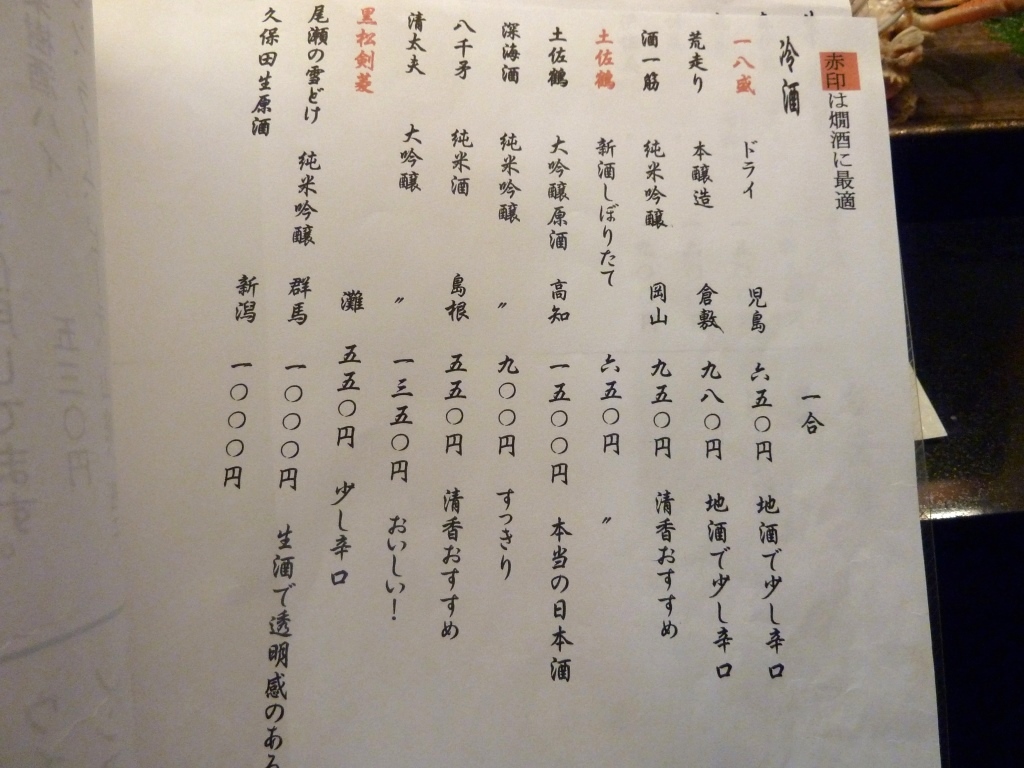 赤印は燗酒に最適
冷酒 一合
一八盛 ドライ 児島 六五〇円 地酒で少し辛口
荒走り 本醸造 倉敷 九八〇円 地酒で少し辛口
酒一筋 純米吟醸 岡山 九五〇円 清香おすすめ
土佐鶴 新酒しぼりたて 六五〇円 〃
土佐鶴 大吟醸原酒 高知 一五〇〇円 本当の日本酒
深海酒 純米吟醸 〃 九〇〇円 すっきり
八千矛 純米酒 島根 五五〇円 清香おすすめ
清太夫 大吟醸 〃 一三五〇円 おいしい!
黒松剣菱 灘 五五〇円 少し辛口
尾瀬の雪どけ 純米吟醸 群馬 一〇〇〇円 生酒で透明感のある
久保田生原酒 新潟 一〇〇〇円
五三〇円